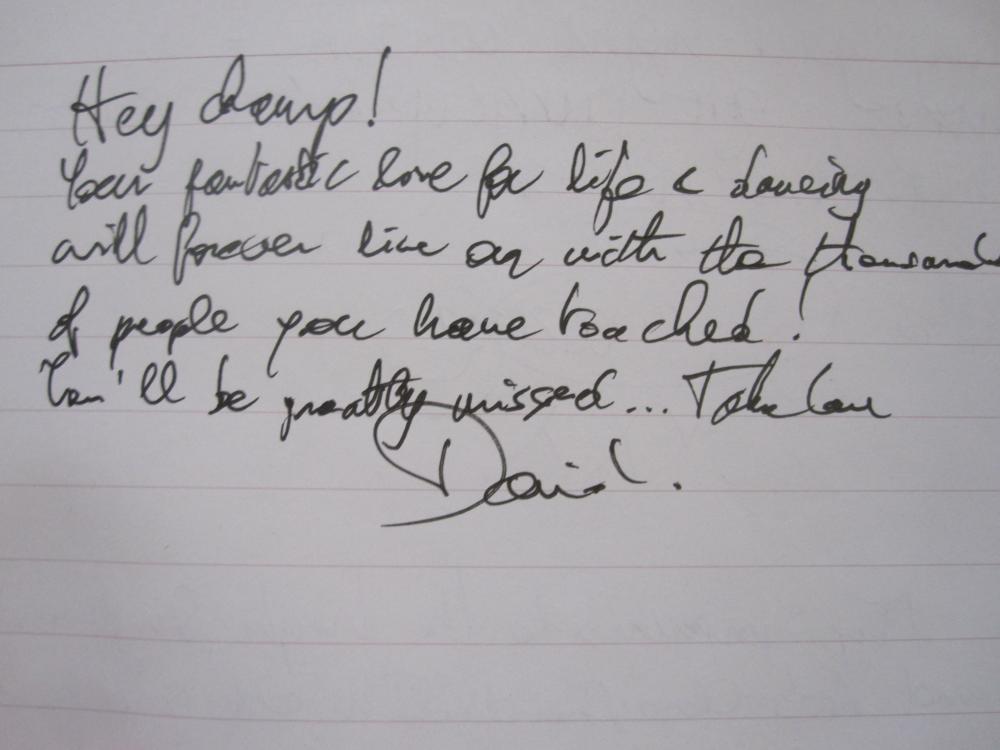 Hey champ!
Your fantastic love for life & dancing
will forever live on with the thousands
of people you have touched!
You'll be greatly missed... Take Care
David.